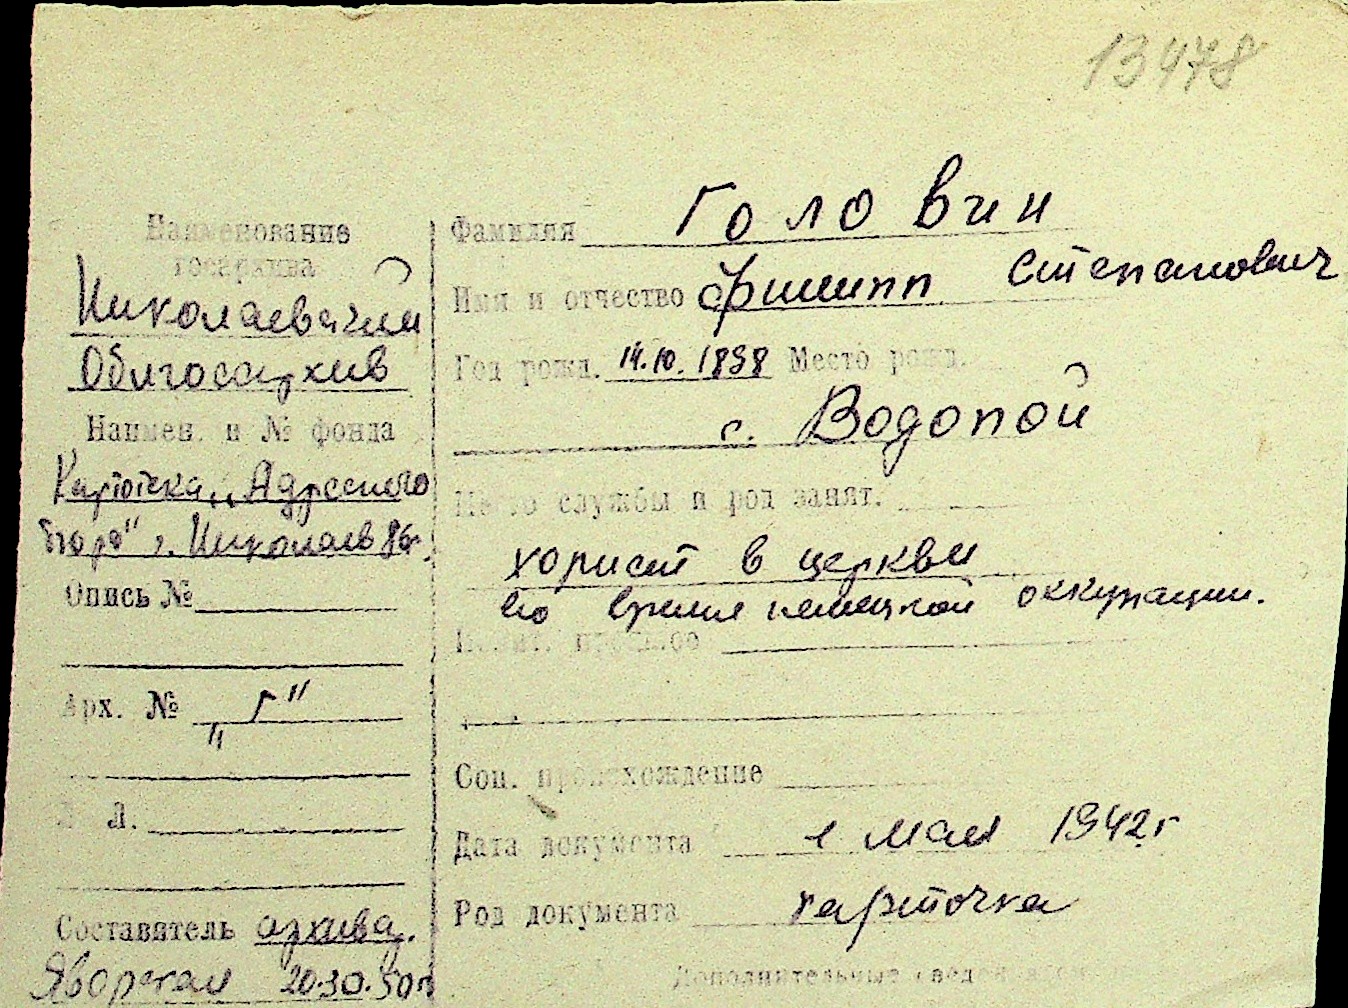 13478
Наименование
госархива
Николаевский
Облгосархив
Наимен. и № фонда
Картотека „Адресного
бюро" г. Николаев
Опись №
Арх. № „Г"
Л.
Составитель архива.
Яворская
Фамилия Головин
Имя и отчество Филипп Степанович
Год рожд. 14.10.1898 Место рожд.
с. Водопой
Место службы и род занят.
хорист в церкви
во время немецкой оккупации.
Полит. прошлое
Соц. происхождение
Дата документа 1 мая 1942 г
Род документа карточка
Дополнительные сведения